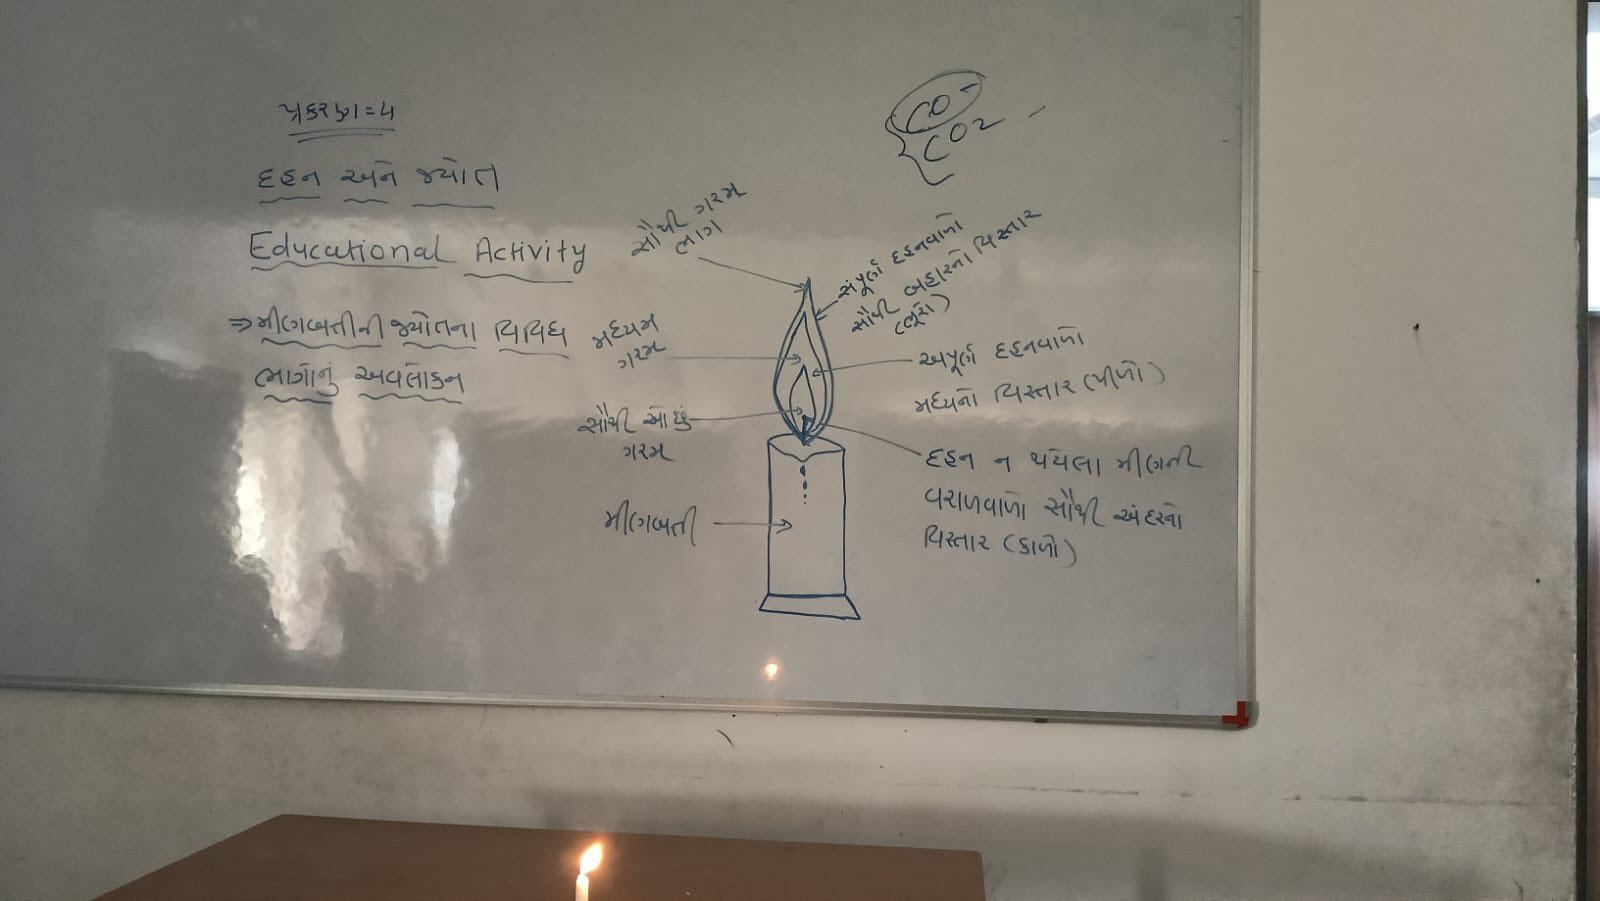 પ્રકરણ = ૪
દહન અને જ્યોત
Educational Activity
⇒ મીણબત્તીની જ્યોતના વિવિધ
ભાગોનું અવલોકન
CO
CO2
સૌથી ગરમ
ભાગ
મધ્યમ
ગરમ
સૌથી ઓછું
ગરમ
મીણબત્તી
સંપૂર્ણ દહનવાળો
સૌથી બહારનો વિસ્તાર
(ભૂરો)
અપૂર્ણ દહનવાળો
મધ્યનો વિસ્તાર (પીળો)
દહન ન થયેલા મીણની
વરાળવાળો સૌથી અંદરનો
વિસ્તાર (કાળો)